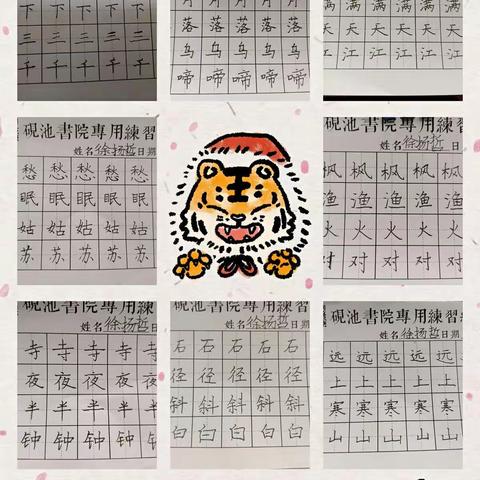 下 下 下 下 下
三 三 三 三 三
千 千 千 千 千
月 月 月 月 月
落 落 落 落 落
乌 乌 乌 乌 乌
啼 啼 啼 啼 啼
满 满 满 满 满
天 天 天 天 天
江 江 江 江 江
硯池書院專用練習
姓名 徐扬哲 日期
愁 愁 愁 愁 愁
眠 眠 眠 眠 眠
姑 姑 姑 姑 姑
苏 苏 苏 苏 苏
王
硯池書院專用練習
姓名 徐扬哲 日期
枫 枫 枫 枫 枫
渔 渔 渔 渔 渔
火 火 火 火 火
对 对 对 对 对
硯池書院專用練
姓名 徐扬哲 日
寺 寺 寺 寺 寺
夜 夜 夜 夜 夜
半 半 半 半 半
钟 钟 钟 钟 钟
硯池書院專用練
姓名 徐扬哲 日
石 石 石 石 石
径 径 径 径 径
斜 斜 斜 斜 斜
白 白 白 白 白
硯池書院專用練習
姓名 徐扬哲 日期
远 远 远 远 远
上 上 上 上 上
寒 寒 寒 寒 寒
山 山 山 山 山